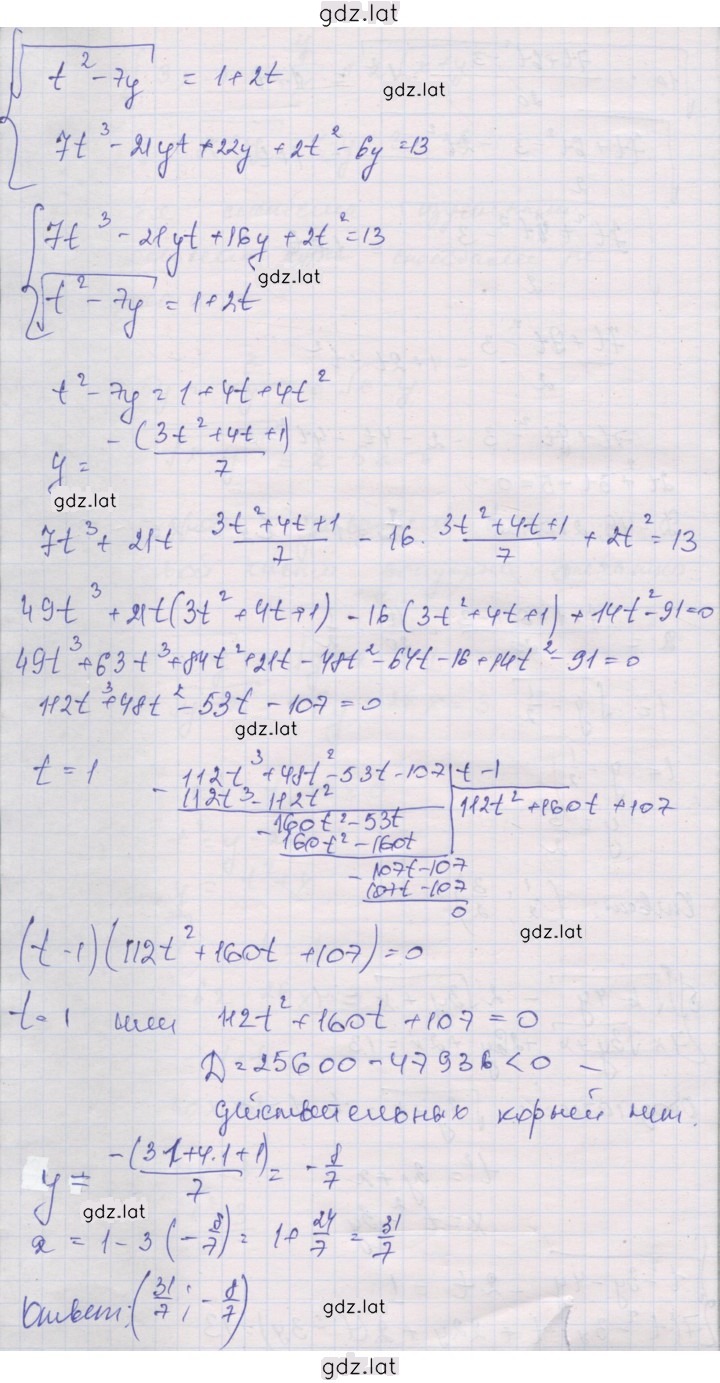 gdz.lat
√(t² - 7y) = 1 + 2t
gdz.lat
7t³ - 21yt + 22y + 2t² - 6y = 13
7t³ - 21yt + 16y + 2t² = 13
gdz.lat
√(t² - 7y) = 1 + 2t
t² - 7y = 1 + 4t + 4t²
y = -(3t² + 4t + 1)/7
gdz.lat
7t³ + 21t (3t² + 4t + 1)/7 - 16 · (3t² + 4t + 1)/7 + 2t² = 13
49t³ + 21t(3t² + 4t + 1) - 16(3t² + 4t + 1) + 14t² - 91 = 0
49t³ + 63t³ + 84t² + 21t - 48t² - 64t - 16 + 14t² - 91 = 0
112t³ + 48t² - 53t - 107 = 0
gdz.lat
t = 1
- 112t³ + 48t² - 53t - 107 | t - 1
112t³ - 112t² | 112t² + 160t + 107
- 160t² - 53t
160t² - 160t
- 107t - 107
107t - 107
0
gdz.lat
(t - 1)(112t² + 160t + 107) = 0
t = 1 или 112t² + 160t + 107 = 0
D = 25600 - 47936 < 0 –
действительных корней нет.
y = -(3·1 + 4·1 + 1)/7 = -8/7
gdz.lat
x = 1 - 3(-8/7) = 1 + 24/7 = 31/7
Ответ: (31/7; -8/7)
gdz.lat
gdz.lat